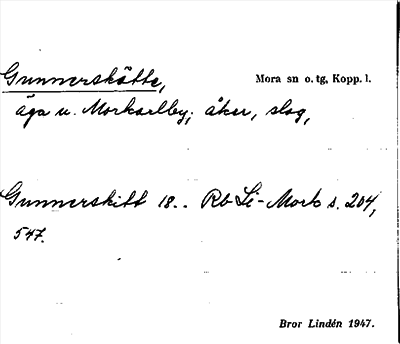 Gunnerskötte, Mora sn o. tg, Kopp. l.
äga u. Morkarlby; åker, slog,
Gunnerskitt 18.. Rb Li-Mork s. 204,
547.
Bror Lindén 1947.